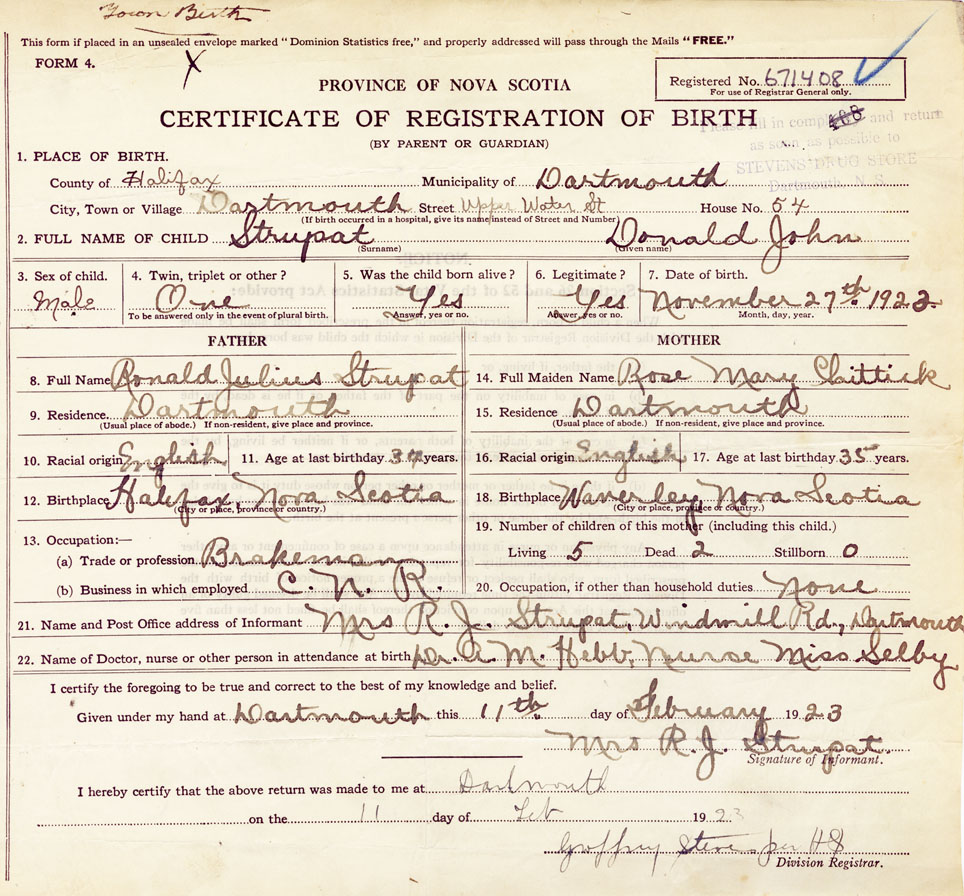 Town Birth
This form if placed in an unsealed envelope marked "Dominion Statistics free," and properly addressed will pass through the Mails "FREE."
FORM 4.
X
PROVINCE OF NOVA SCOTIA
Registered No. 671408
For use of Registrar General only.
CERTIFICATE OF REGISTRATION OF BIRTH
(BY PARENT OR GUARDIAN)
Please fill in complete and return
as soon as possible to
STEVENS' DRUG STORE
Dartmouth, N. S.
1. PLACE OF BIRTH.
County of Halifax Municipality of Dartmouth
City, Town or Village Dartmouth Street Upper Water St House No. 54
(If birth occurred in a hospital, give its name instead of Street and Number)
2. FULL NAME OF CHILD Strupat Donald John
(Surname) (Given name)
3. Sex of child. 4. Twin, triplet or other? 5. Was the child born alive? 6. Legitimate? 7. Date of birth.
Male One Yes Yes November 27th 1922
To be answered only in the event of plural birth. Answer, yes or no. Answer, yes or no. Month, day, year.
FATHER MOTHER
8. Full Name Ronald Julius Strupat 14. Full Maiden Name Rose Mary Chittick
9. Residence Dartmouth 15. Residence Dartmouth
(Usual place of abode.) If non-resident, give place and province. (Usual place of abode.) If non-resident, give place and province.
10. Racial origin English 11. Age at last birthday years. 16. Racial origin English 17. Age at last birthday 35 years.
12. Birthplace Halifax, Nova Scotia 18. Birthplace Waverley Nova Scotia
(City or place, province or country.) (City or place, province or country.)
19. Number of children of this mother (including this child.)
13. Occupation:—
(a) Trade or profession Brakeman Living 5 Dead 2 Stillborn 0
(b) Business in which employed C. N. R. 20. Occupation, if other than household duties None
21. Name and Post Office address of Informant Mrs R. J. Strupat, Windmill Rd., Dartmouth
22. Name of Doctor, nurse or other person in attendance at birth Dr. A. M. Hebb, Nurse Miss Selby
I certify the foregoing to be true and correct to the best of my knowledge and belief.
Given under my hand at Dartmouth this 11th day of February 1923
Mrs R. J. Strupat.
Signature of Informant.
I hereby certify that the above return was made to me at Dartmouth
on the 11 day of Feb 1923
Geoffrey Stevens per HS
Division Registrar.